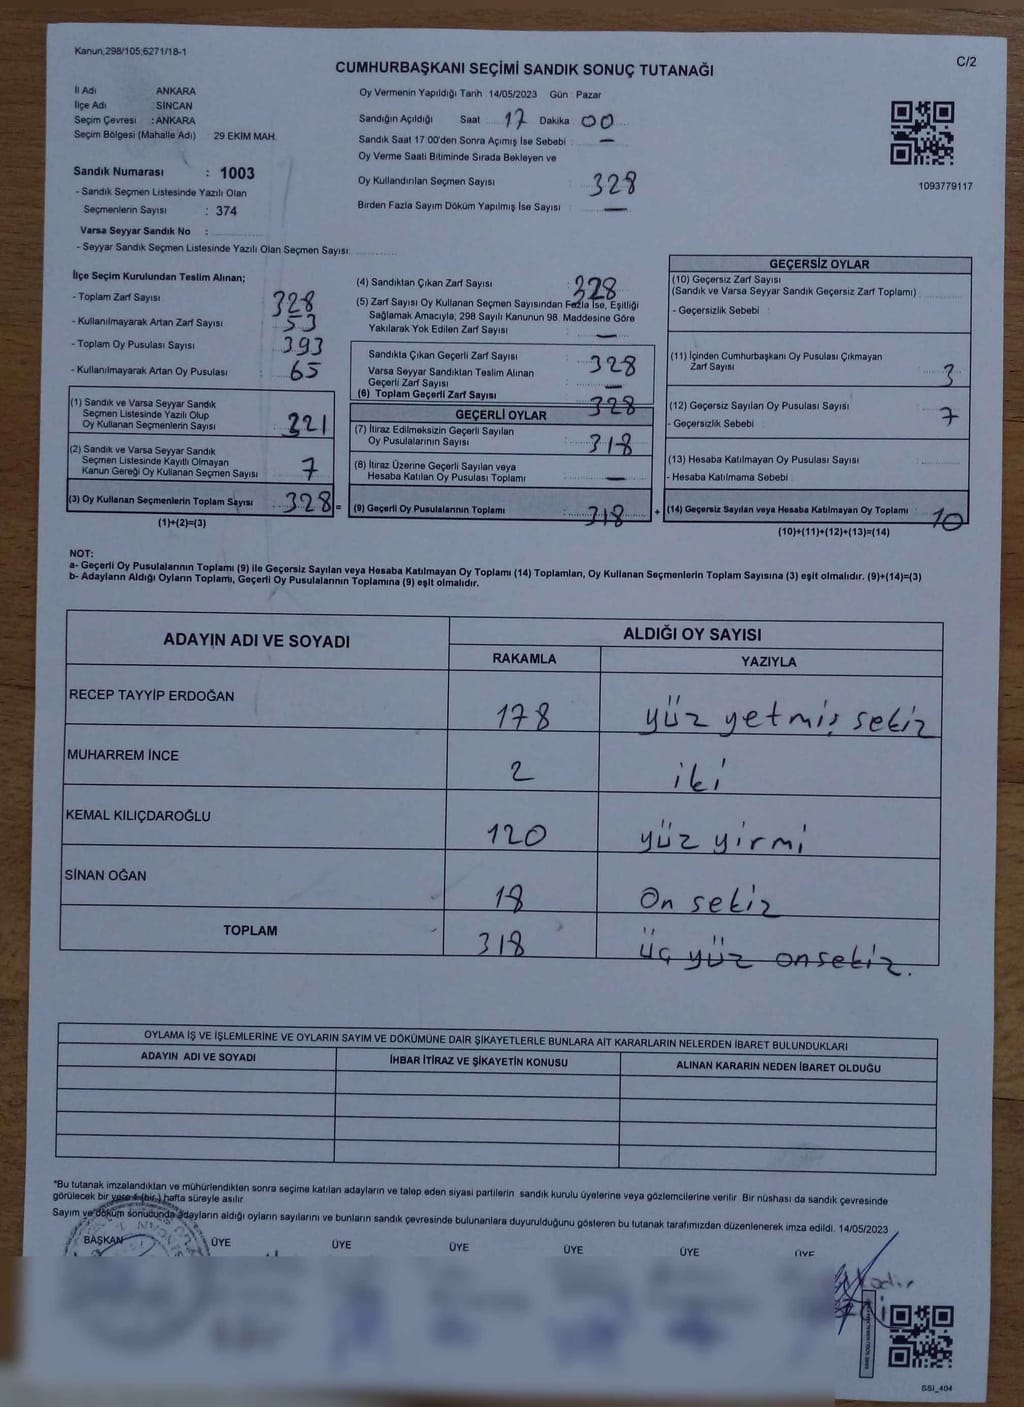 Kanun,298/105;6271/18-1
C/2
CUMHURBAŞKANI SEÇİMİ SANDIK SONUÇ TUTANAĞI
İl Adı ANKARA
İlçe Adı SİNCAN
Seçim Çevresi : ANKARA
Seçim Bölgesi (Mahalle Adı) 29 EKİM MAH.
Sandık Numarası : 1003
- Sandık Seçmen Listesinde Yazılı Olan
Seçmenlerin Sayısı : 374
Varsa Seyyar Sandık No :
- Seyyar Sandık Seçmen Listesinde Yazılı Olan Seçmen Sayısı:
Oy Vermenin Yapıldığı Tarih 14/05/2023 Gün Pazar
Sandığın Açıldığı Saat 17 Dakika 00
Sandık Saat 17:00'den Sonra Açımış İse Sebebi : —
Oy Verme Saati Bitiminde Sırada Bekleyen ve
Oy Kullandırılan Seçmen Sayısı : 328
Birden Fazla Sayım Döküm Yapılmış İse Sayısı : —
1093779117
İlçe Seçim Kurulundan Teslim Alınan;
- Toplam Zarf Sayısı 328
- Kullanılmayarak Artan Zarf Sayısı : 53
- Toplam Oy Pusulası Sayısı : 393
- Kullanılmayarak Artan Oy Pusulası : 65
(1) Sandık ve Varsa Seyyar Sandık
Seçmen Listesinde Yazılı Olup
Oy Kullanan Seçmenlerin Sayısı : 321
(2) Sandık ve Varsa Seyyar Sandık
Seçmen Listesinde Kayıtlı Olmayan
Kanun Gereği Oy Kullanan Seçmen Sayısı : 7
(3) Oy Kullanan Seçmenlerin Toplam Sayısı : 328 =
(1)+(2)=(3)
(4) Sandıktan Çıkan Zarf Sayısı : 328
(5) Zarf Sayısı Oy Kullanan Seçmen Sayısından Fazla İse, Eşitliği
Sağlamak Amacıyla; 298 Sayılı Kanunun 98. Maddesine Göre
Yakılarak Yok Edilen Zarf Sayısı : —
Sandıkta Çıkan Geçerli Zarf Sayısı : 328
Varsa Seyyar Sandıktan Teslim Alınan
Geçerli Zarf Sayısı : —
(6) Toplam Geçerli Zarf Sayısı : 328
GEÇERLİ OYLAR
(7) İtiraz Edilmeksizin Geçerli Sayılan
Oy Pusulalarının Sayısı : 318
(8) İtiraz Üzerine Geçerli Sayılan veya
Hesaba Katılan Oy Pusulası Toplamı : —
(9) Geçerli Oy Pusulalarının Toplamı : 318 +
GEÇERSİZ OYLAR
(10) Geçersiz Zarf Sayısı
(Sandık ve Varsa Seyyar Sandık Geçersiz Zarf Toplamı)
- Geçersizlik Sebebi :
(11) İçinden Cumhurbaşkanı Oy Pusulası Çıkmayan
Zarf Sayısı : 3
(12) Geçersiz Sayılan Oy Pusulası Sayısı : 7
- Geçersizlik Sebebi :
(13) Hesaba Katılmayan Oy Pusulası Sayısı :
- Hesaba Katılmama Sebebi :
(14) Geçersiz Sayılan veya Hesaba Katılmayan Oy Toplamı : 10
(10)+(11)+(12)+(13)=(14)
NOT:
a- Geçerli Oy Pusulalarının Toplamı (9) ile Geçersiz Sayılan veya Hesaba Katılmayan Oy Toplamı (14) Toplamları, Oy Kullanan Seçmenlerin Toplam Sayısına (3) eşit olmalıdır. (9)+(14)=(3)
b- Adayların Aldığı Oyların Toplamı, Geçerli Oy Pusulalarının Toplamına (9) eşit olmalıdır.
ADAYIN ADI VE SOYADI ALDIĞI OY SAYISI
RAKAMLA YAZIYLA
RECEP TAYYİP ERDOĞAN 178 yüz yetmiş sekiz
MUHARREM İNCE 2 iki
KEMAL KILIÇDAROĞLU 120 yüz yirmi
SİNAN OĞAN 18 On sekiz
TOPLAM 318 üç yüz onsekiz.
OYLAMA İŞ VE İŞLEMLERİNE VE OYLARIN SAYIM VE DÖKÜMÜNE DAİR ŞİKAYETLERLE BUNLARA AİT KARARLARIN NELERDEN İBARET BULUNDUKLARI
ADAYIN ADI VE SOYADI İHBAR İTİRAZ VE ŞİKAYETİN KONUSU ALINAN KARARIN NEDEN İBARET OLDUĞU
*Bu tutanak imzalandıktan ve mühürlendikten sonra seçime katılan adayların ve talep eden siyasi partilerin sandık kurulu üyelerine veya gözlemcilerine verilir. Bir nüshası da sandık çevresinde
görülecek bir yere 1 (bir) hafta süreyle asılır.
Sayım ve döküm sonucunda adayların aldığı oyların sayılarını ve bunların sandık çevresinde bulunanlara duyurulduğunu gösteren bu tutanak tarafımızdan düzenlenerek imza edildi. 14/05/2023
BAŞKAN ÜYE ÜYE ÜYE ÜYE ÜYE ÜYE
SSI_404